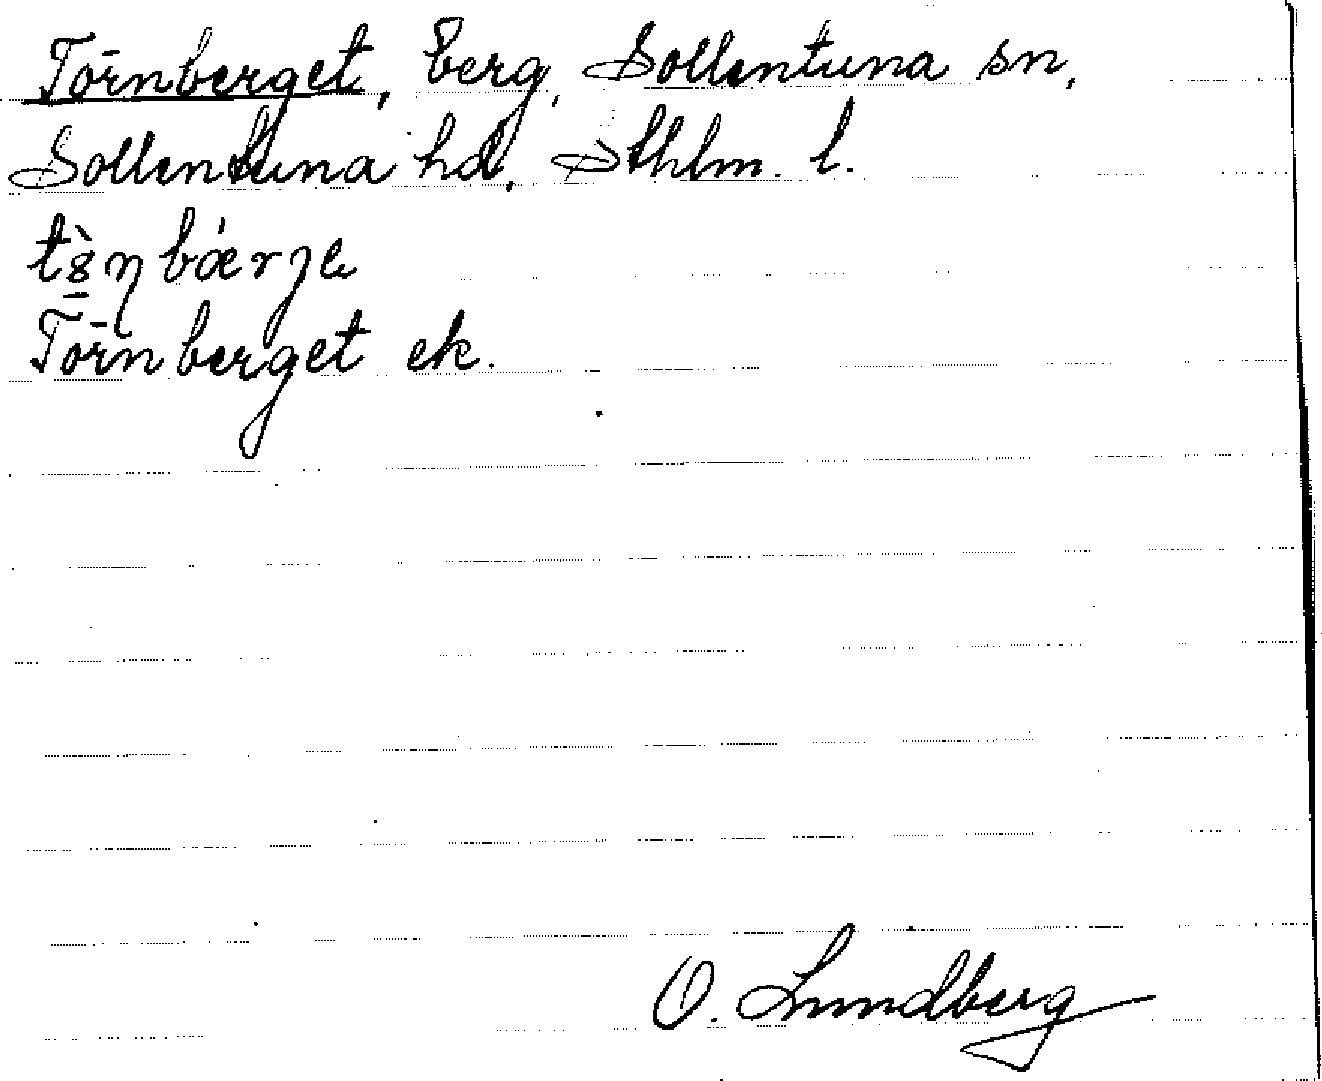 Törnberget, berg, Sollentuna sn,
Sollentuna hd, Sthlm. l.
Törnberget ek.
O. Lundberg